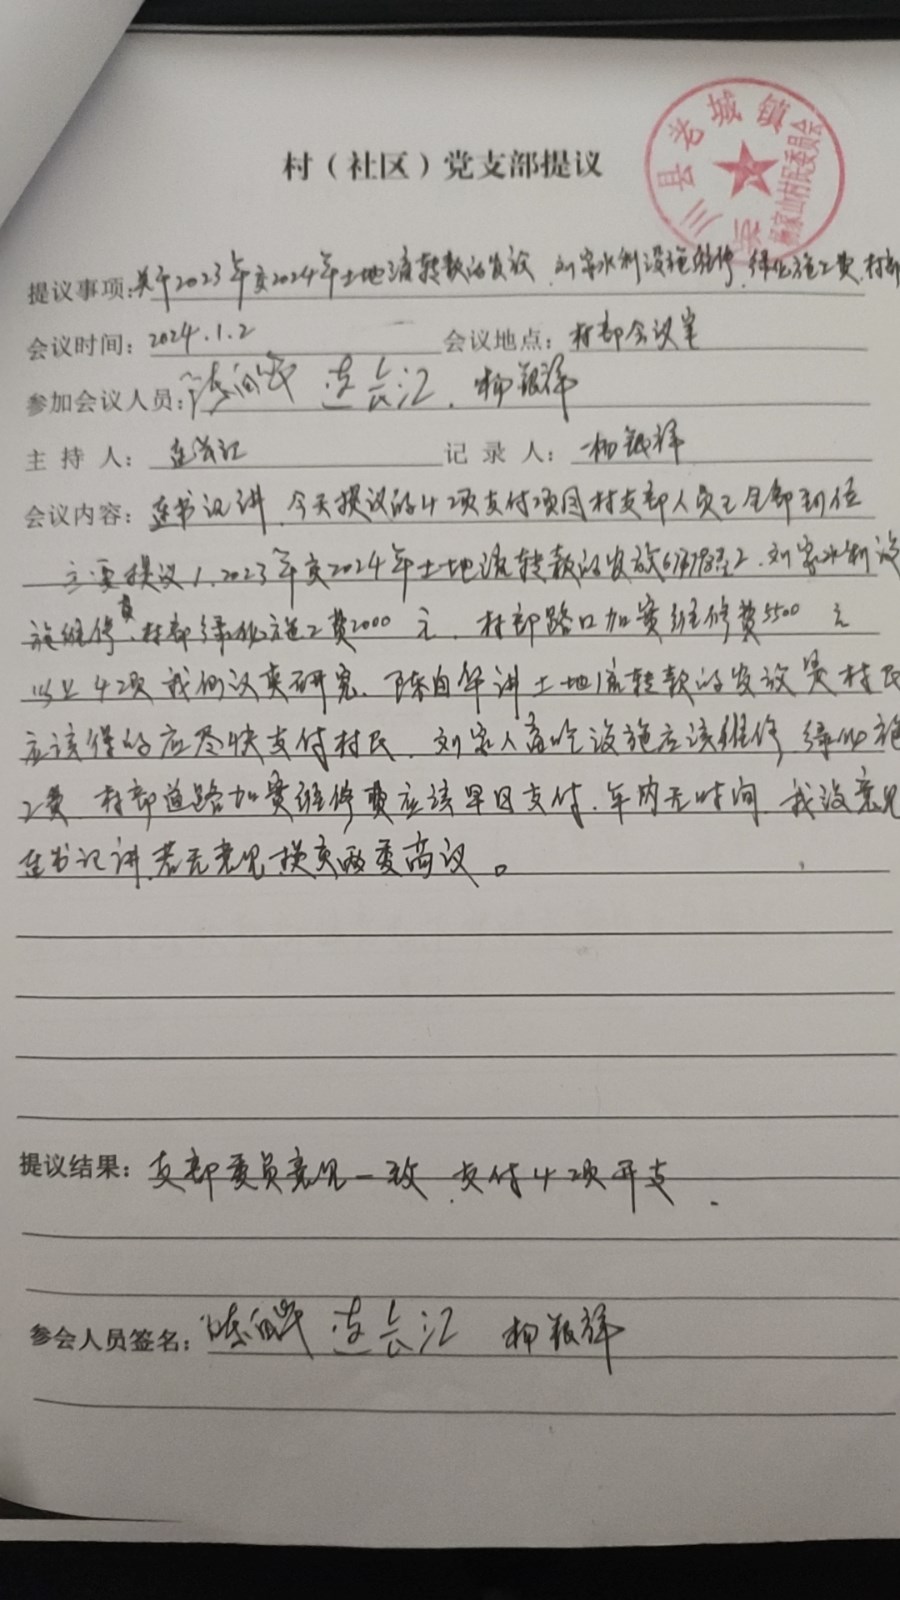 村（社区）党支部提议
老城镇
村民委员会
提议事项：关于2023年度2024年土地流转款的发放、刘家水利设施维修、绿化施工费、村部
会议时间：2024.1.2 会议地点：村部会议室
参加会议人员：陈自华 连长江、杨银祥
主持人：连长江 记录人：杨银祥
会议内容：连书记讲、今天提议的4项支付项目村支部人员已全部到位
主要提议1.2023年度2024年土地流转款的发放 2.刘家水利设
施维修费、村部绿化施工费2000元、村部路口加宽维修费5500元
以上4项我们议事研究、陈自华讲土地流转款的发放是村民
应该得的应尽快支付村民、刘家人畜吃设施应该维修、绿化施
工费、村部道路加宽维修费应该早日支付、年内无时间、我没意见
连书记讲、若无意见提交两委商议。
提议结果：支部委员意见一致、支付4项开支.
参会人员签名：陈自华 连长江 杨银祥